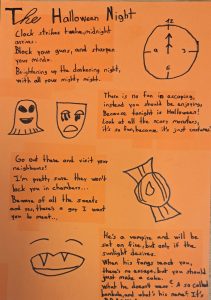 The Halloween Night
Clock strikes twelve, midnight
arrives.
Block your guns, and sharpen
your minds.
Brightening up the darkening night,
with all your mighty might.
12
9
3
6
There is no fun in escaping,
instead you should be enjoying.
Because tonight is Halloween!
Look at all the scary monsters,
it's so fun, because it's just costumes
Go out there and visit your
neighbours!
I'm pretty sure they won't
lock you in chambers...
Beware of all the sweets
and so, there's a guy I want
you to meet...
He's a vampire and will be
set on fire, but only if the
sunlight desires.
When his fangs reach you,
there's no escape, but you should
just make a cake.
What he doesn't want? A so called
and what's his name? It's